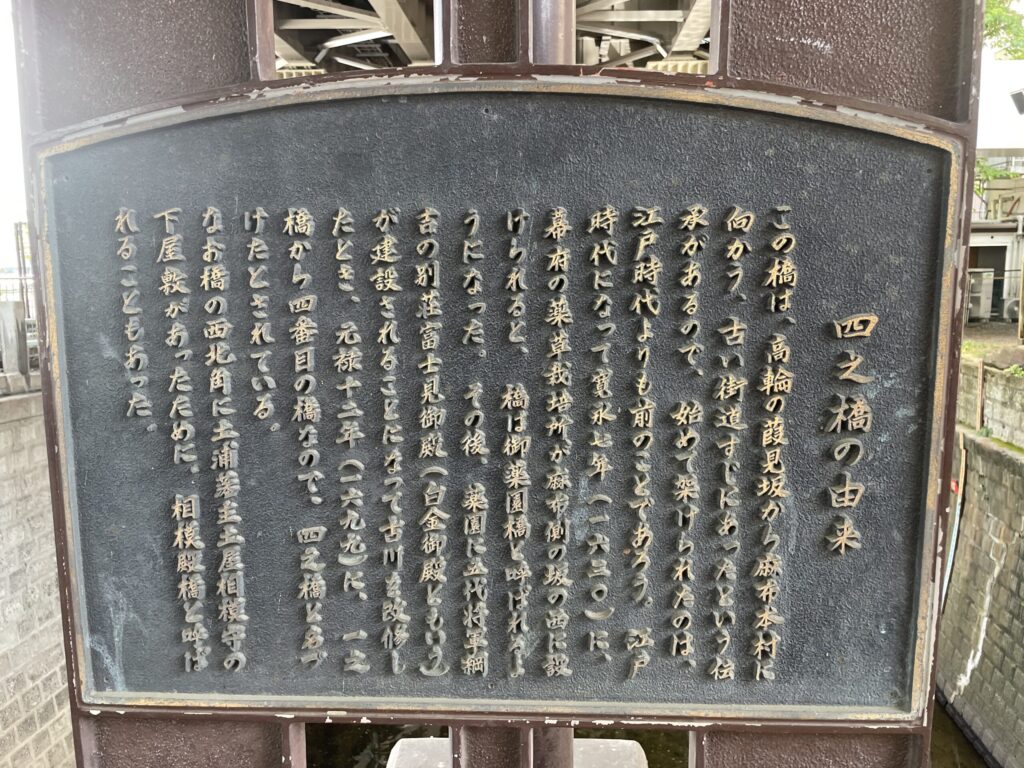 四之橋の由来
この橋は、高輪の葭見坂から麻布本村に
向かう、古い街道すじにあったという伝
承があるので、始めて架けられたのは、
江戸時代よりも前のことであろう。江戸
時代になって寛永七年（一六三〇）に、
幕府の薬草栽培所が麻布側の坂の西に設
けられると、橋は御薬園橋と呼ばれるよ
うになった。その後、薬園に五代将軍綱
吉の別荘富士見御殿（白金御殿ともいう）
が建設されることになって古川を改修し
たとき、元禄十二年（一六九九）に、一之
橋から四番目の橋なので、四之橋と名づ
けたとされている。
なお橋の西北角に土浦藩主土屋相模守の
下屋敷があったために、相模殿橋と呼ば
れることもあった。